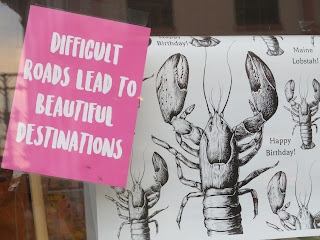 DIFFICULT
ROADS LEAD TO
BEAUTIFUL
DESTINATIONS
Happy
Birthday!
Maine
Lobstah!
Happy
Birthday!